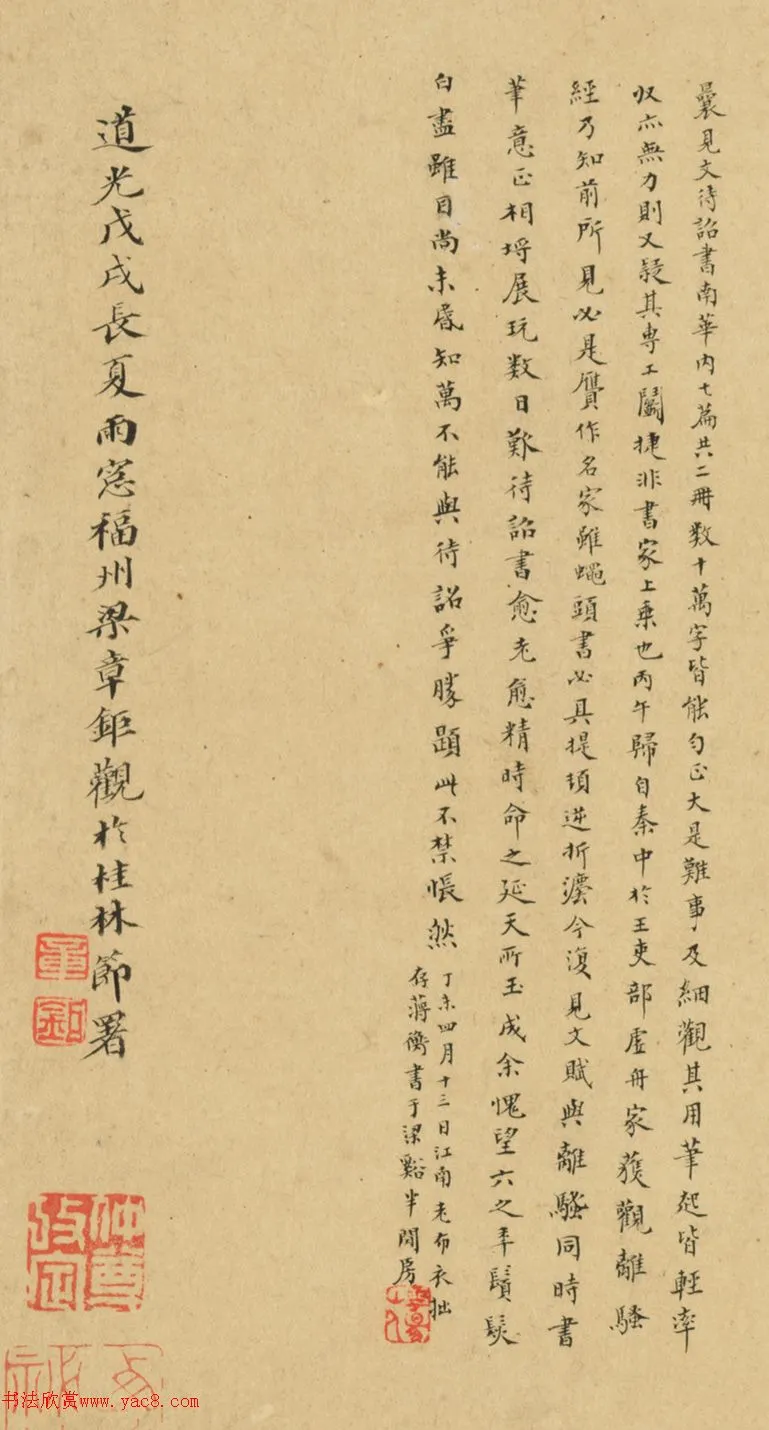 曩見文待詔書南華內七篇共二冊数十萬字皆能勻正大是難事及細觀其用筆起皆輕率
収亦無力則又疑其專工鬭捷非書家上乘也丙午歸自秦中於王吏部虛舟家獲觀離騷
經乃知前所見必是贋作名家雖蠅頭書必具提頓逆折灋今復見文賦與離騷同時書
筆意正相埒展玩数日歎待詔書愈老愈精時命之延天所玉成余愧望六之年鬚鬂
白盡雖目尚未昬知萬不能與待詔爭勝題此不禁悵然
丁未四月十三日江南老布衣拙
存蔣衡書于梁谿半閒房
道光戊戌長夏雨窓福州梁章鉅觀於桂林節署
章鉅
书法欣赏www.yac8.com